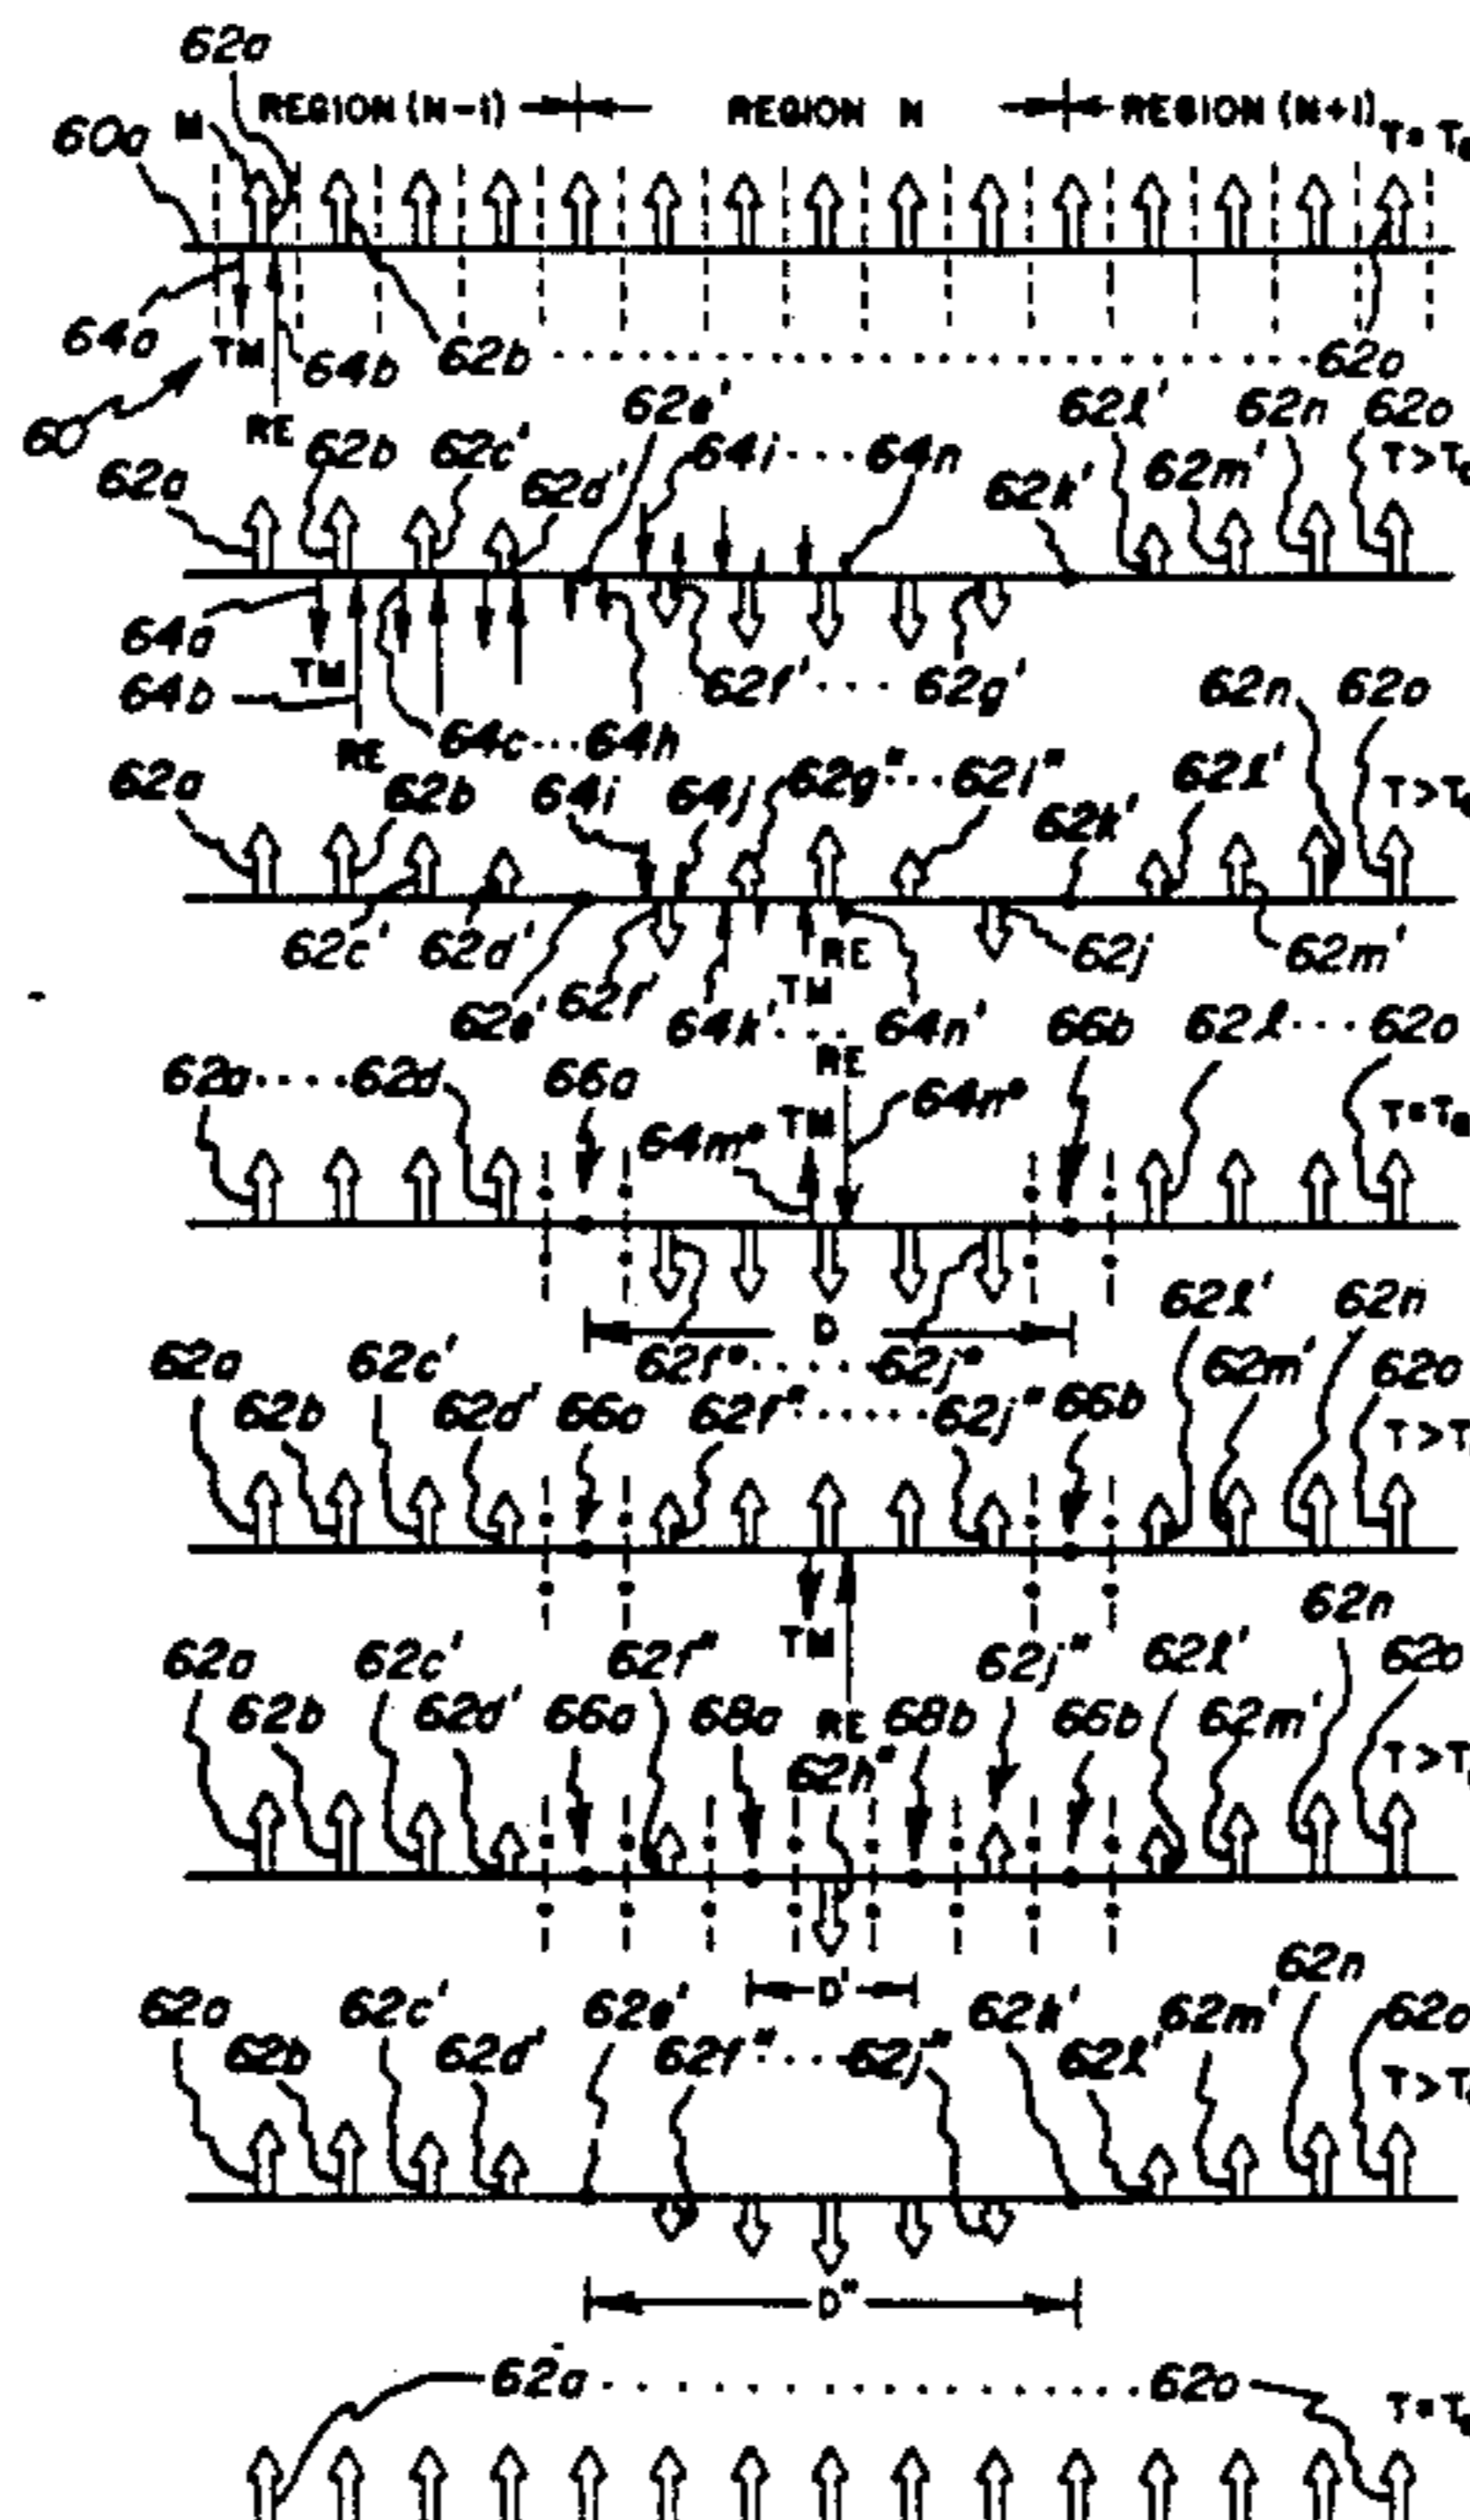 62a
60a M REGION (N-1) REGION N REGION (N+1) T=T
64a TM 64b 62b ..................... 62o
60 RE
62a 62b 62c' 62d' 62e' 64i...64n 62k' 62l' 62m' 62n 62o T>T
64a TM 62f'...62g'
64b RE 64c...64h
62a 62b 64i 64j 62g"...62i" 62k' 62l' 62n 62o T>T
62c' 62d' RE 62j 62m'
62e' 62f' TM 64k'... 64n'
62a....62d 66a RE 66b 62l...62o
64m" TM 64n" T=T
D
62f"......62j"
62a 62b 62c' 62d' 66a 62f"......62j" 66b 62l' 62m' 62n 62o T>T
TM
RE
62a 62b 62c' 62d' 66a 62f" 68a 68b 62j" 66b 62l' 62m' 62n 62o T>T
62h"
D'
62a 62b 62c' 62d' 62e' 62f"...62j" 62k' 62l' 62m' 62n 62o T>T
D"
62a .............. 62o T=T